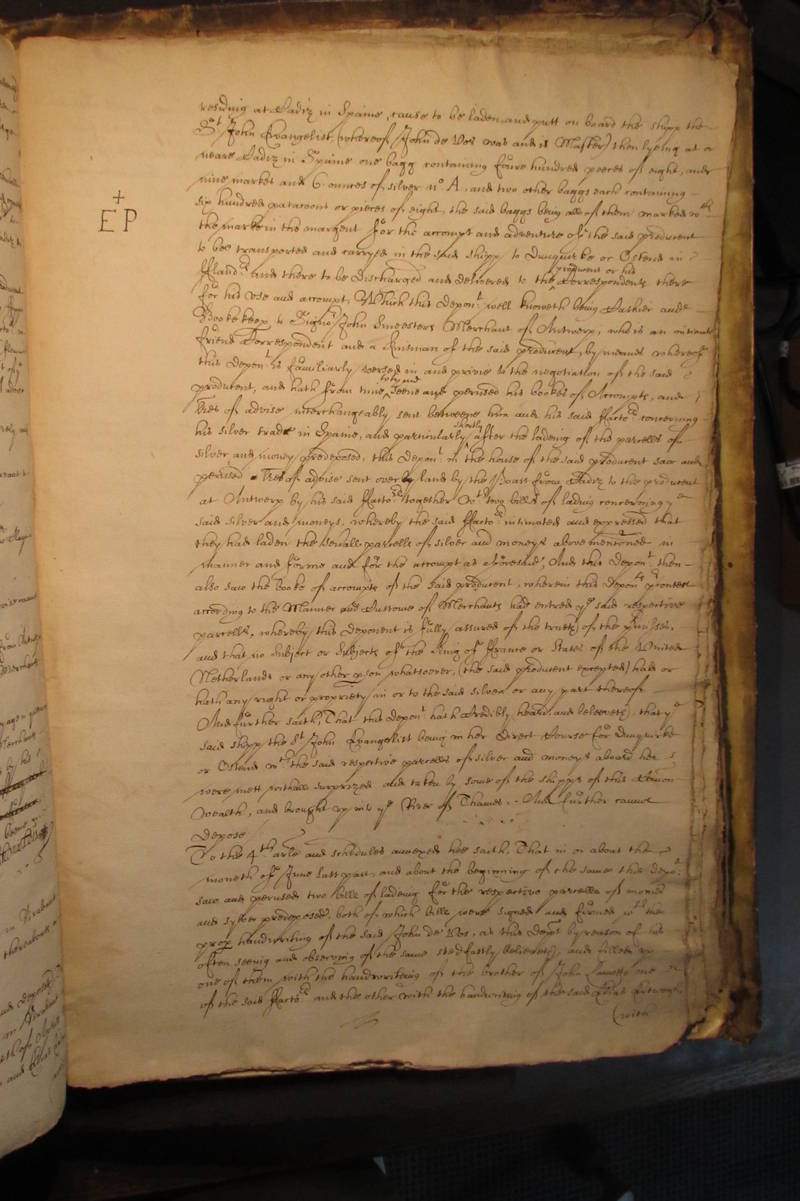 +
E P
residing at Cadiz in Spaine, cause to be laden and putt on board the shipp the
St John Evangelist (whereof John de Vos was and is Master) then lyeing at or
neare Cadiz in Spaine one bagg containing foure hundred peeces of eight, and
nine markes and 6 ounces of silver no A, and two other baggs each containing
six hundred patacoons or pieces of eight, the said baggs being all of them marked wth
the marke in the margent for the accompt and adventure of the said producent
to bee transported and carryed in the said shipp to Dunquirke or Ostend in
Flandrs and there to be discharged and delivered to the producent or his Correspondents there
for his use and accompt, Which this depont well knoweth being Cashier and
Booke keeper to Signor John Smeesters Merchant of Antwerp, who is an intimate
friend Correspondent and a kinsman of the said producent, by meanes whereof
this deponent is familiarly versed in and privie to the negotiation of the said
producent, and hath from time to time seene and perused his bookes of Accompts, and
lres of advise interchangeably sent betweene him and his said Factors concerning
his silver trade in Spaine, and particularly shortly after the lading of the parcells of
silver and money predeposed, this deponent in the house of the said producent saw and
perused lres of advise sent over by land by the Post from Cadiz to the producent
at Antwerp by his said Factors together wth two bills of lading concerning ye
said silver and moneys, whereby the said Factors intimated and expressed that
they had laden the severall parcells of silver and moneys above mentioned in
manner and forme and for the accompt as aforesaid, And this deponent then
also saw the booke of accompts of the said producent, wherein this deponent
according to the Manner and Custome of Merchants had entred ye said respective
parcells, whereby this deponent is fully assured of the trueth of the premisses,
and that no subject or subjects of the King of France or States of the United
Netherlands or any other person whatsoever, (the said producent excepted) had or
hath any right or propriety in or to the said silver or any part thereof
And further saith, That this deponent hath credibly heard and beleeveth, that ye
said shipp the St John Evangelist being in her direct Course for Dunquirke
or Ostend wth the said respective parcells of silver and moneys aboard her
were mett withall surprized and taken by some of the shipps of this Common
Wealth, and brought up into ye River of Thames. And further cannot
depose
To the 4th arle and schedules annexed hee saith, That in or about the
moneth of June last past, and about the beginning of the same this depont
saw and perused two bills of lading for the respective parcells of monies
and sylver predeposed, both of which bills were signed and firmed wth the
proper handwriting of the said John de Vos, as this depont by reason of his
often seeing and observing of the same stedfastly beleeveth, and filled up
one of them with the handwriting of the brother of John one
of the said Factors and the other with the handwriting of the said
(with